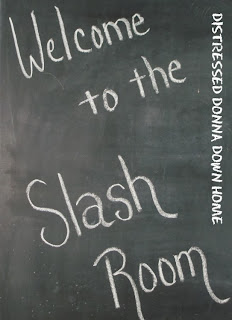 Welcome
to the
Slash
Room
DISTRESSED DONNA DOWN HOME